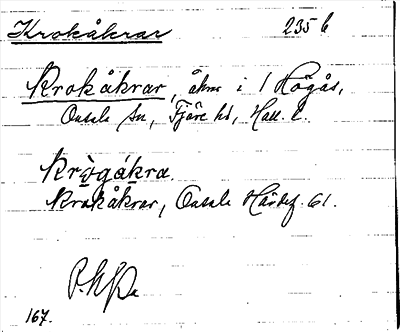 Krokåkrar 235 b
Krokåkrar, åkrar i 1 Högås,
Onsala sn, Fjäre hd, Hall. l.
Krògákra.
Krokåkrar, Onsala Härdsf. 61.
167.